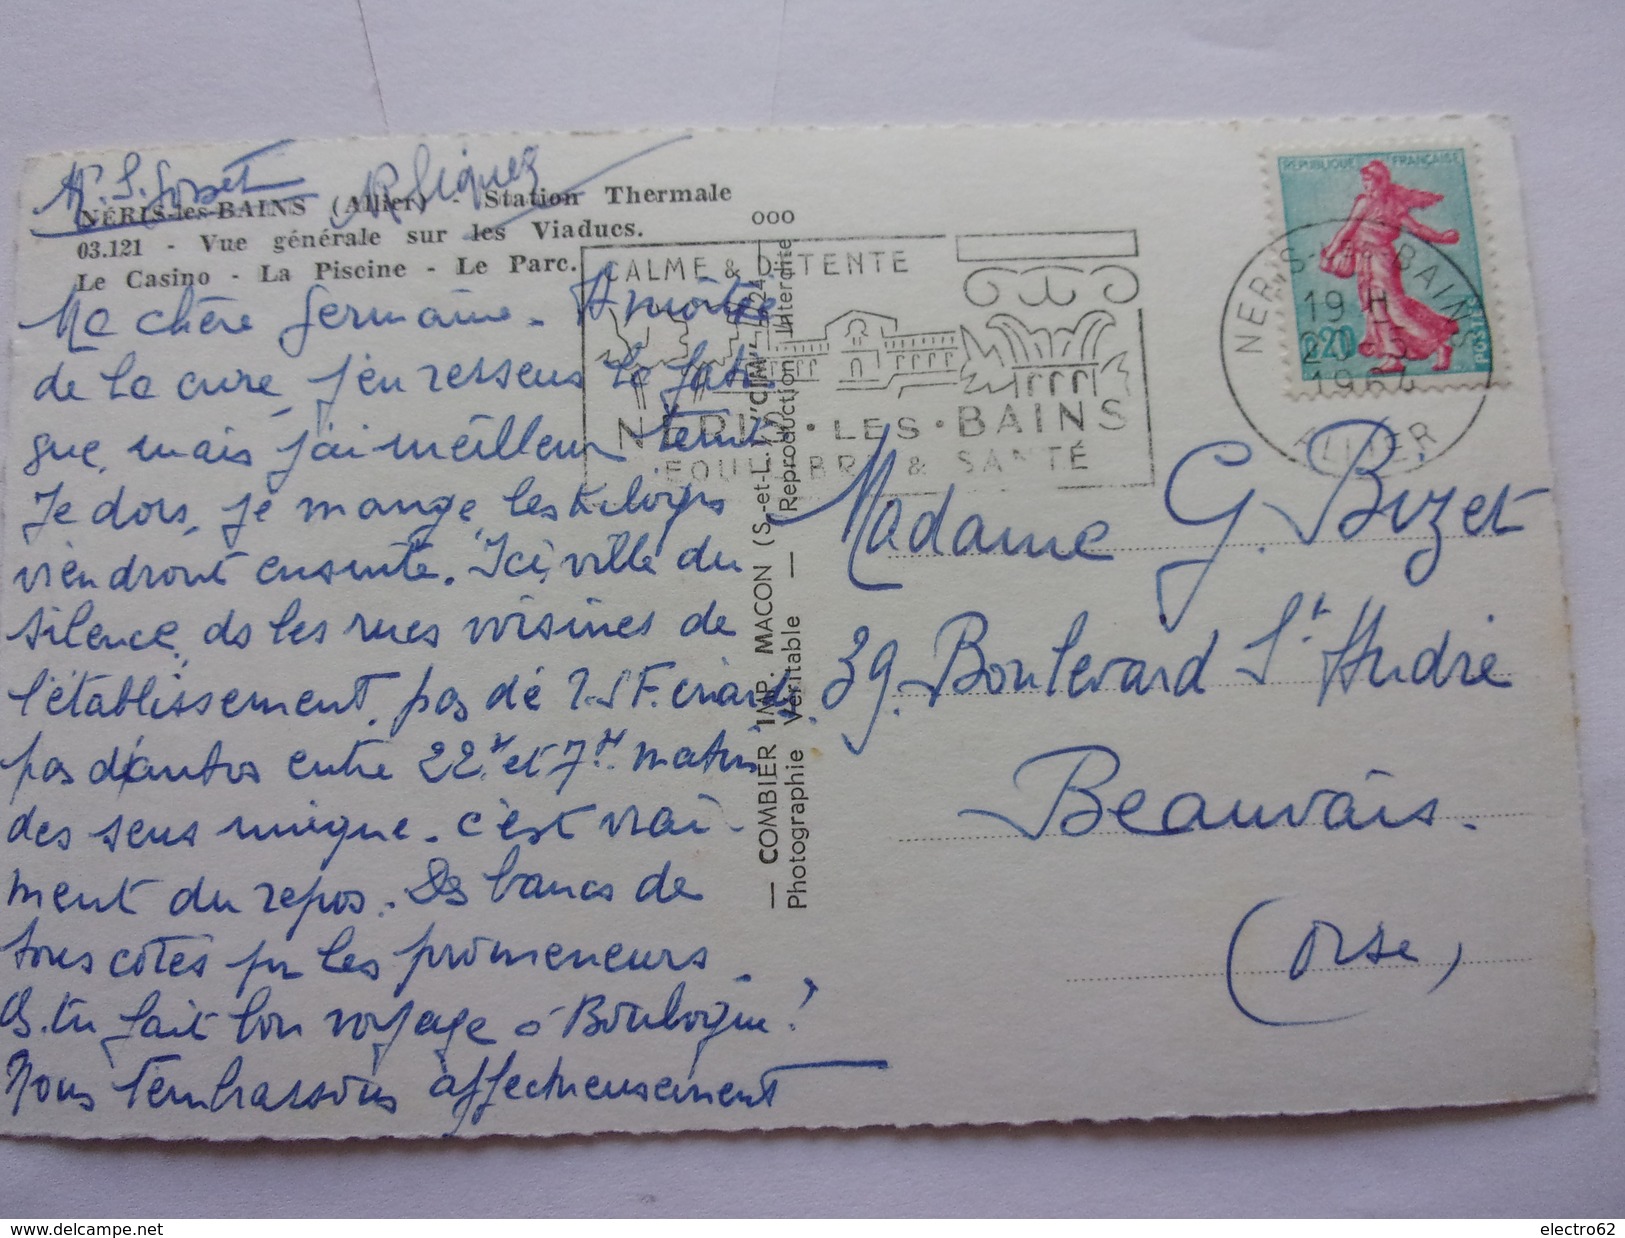 NÉRIS-les-BAINS (Allier) - Station Thermale
03.121 - Vue générale sur les Viaducs.
Le Casino - La Piscine - Le Parc.
Ma chère Germaine. A moitié
de la cure, j'en ressens la fati
gue, mais j'ai meilleur teint
Je dors, je mange, les kilogs
viendront ensuite. Ici, ville du
silence, ds les rues voisines de
l'établissement, pas de
pas d'autos entre 22H et 7H. matin
des sens unique. c'est vrai-
ment du repos. Ds bancs de
tous cotés pr les promeneurs.
As. tu fait bon voyage à Boulogne?
Nous t'embrassons affectueusement
000
— COMBIER IMP. MACON (S.-et-L.) "CIM" —
Photographie Véritable — Reproduction Interdite
CALME & DÉTENTE
NÉRIS · LES · BAINS
ÉQUILIBRE & SANTÉ
REPUBLIQUE FRANÇAISE
0,20
POSTES
NERIS-LES-BAINS
19 H
1964
ALLIER
Madame G. Bizet
39, Boulevard St André
Beauvais.
(Oise)
electro62